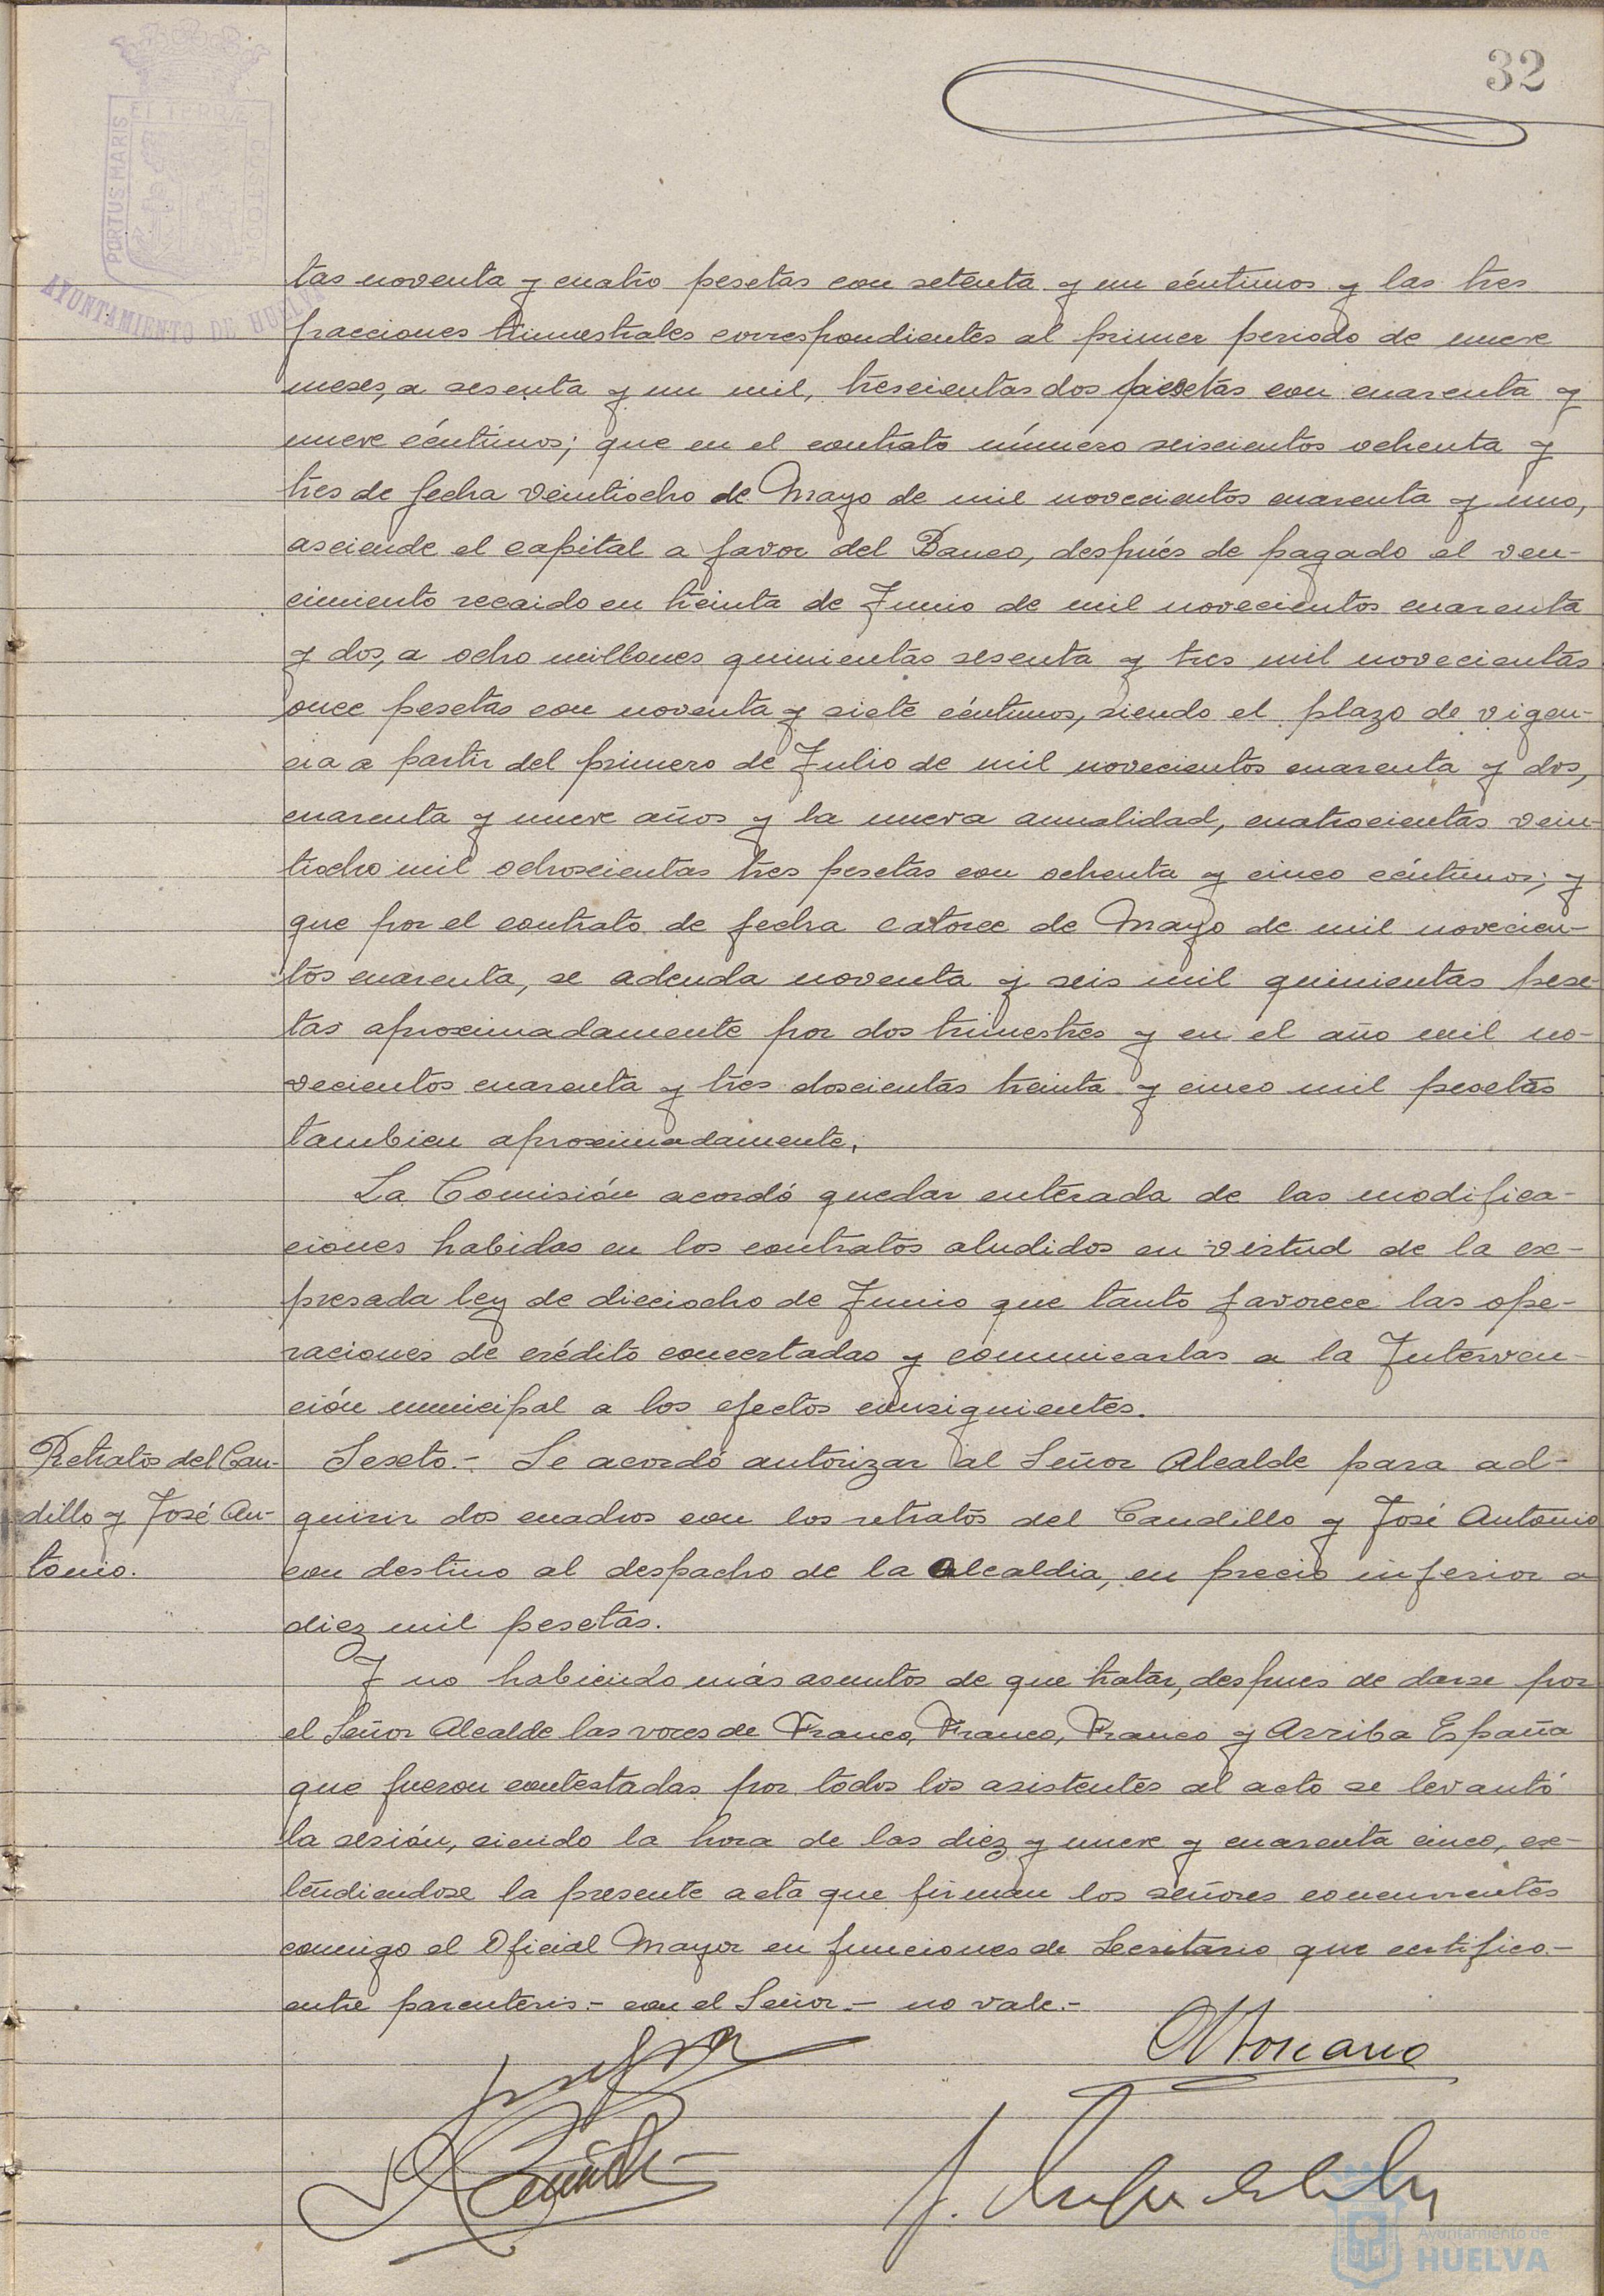 32
PORTUS MARIS
ET TERRÆ
CUSTODIA
AYUNTAMIENTO DE HUELVA
tas noventa y cuatro pesetas con setenta y un céntimos y las tres
fracciones trimestrales correspondientes al primer periodo de nueve
meses, a sesenta y un mil, trescientas dos pesetas con cuarenta y
nueve céntimos; que en el contrato número seiscientos ochenta y
tres de fecha veintiocho de Mayo de mil novecientos cuarenta y uno,
asciende el capital a favor del Banco, después de pagado el ven-
cimiento recaido en treinta de Junio de mil novecientos cuarenta
y dos, a ocho millones quinientas sesenta y tres mil novecientas
once pesetas con noventa y siete céntimos, siendo el plazo de vigen-
cia a partir del primero de Julio de mil novecientos cuarenta y dos,
cuarenta y nueve años y la nueva anualidad, cuatrocientas vein-
tiocho mil ochoscientas tres pesetas con ochenta y cinco céntimos; y
que por el contrato de fecha catorce de Mayo de mil novecien-
tos cuarenta, se adeuda noventa y seis mil quinientas pese-
tas aproximadamente por dos trimestres y en el año mil no-
vecientos cuarenta y tres doscientas treinta y cinco mil pesetas
tambien aproximadamente.
La Comisión acordó quedar enterada de las modifica-
ciones habidas en los contratos aludidos en virtud de la ex-
presada ley de dieciocho de Junio que tanto favorece las ope-
raciones de crédito concertadas y comunicarlas a la Interven-
ción municipal a los efectos consiguientes.
Retratos del Cau-
dillo y José An-
tonio.
Sexto.- Se acordó autorizar al Señor Alcalde para ad-
quirir dos cuadros con los retratos del Caudillo y José Antonio
con destino al despacho de la Alcaldia, en precio inferior a
diez mil pesetas.
Y no habiendo más asuntos de que tratar, despues de darse por
el Señor Alcalde las voces de Franco, Franco, Franco y Arriba España
que fueron contestadas por todos los asistentes al acto se levantó
la sesión, siendo la hora de las diez y nueve y cuarenta cinco, ex-
tendiendose la presente acta que firman los señores concurrentes
conmigo el Oficial Mayor en funciones de Secretario que certifico.-
entre parentesis.- con el Señor.- no vale.-
Ayuntamiento de
HUELVA